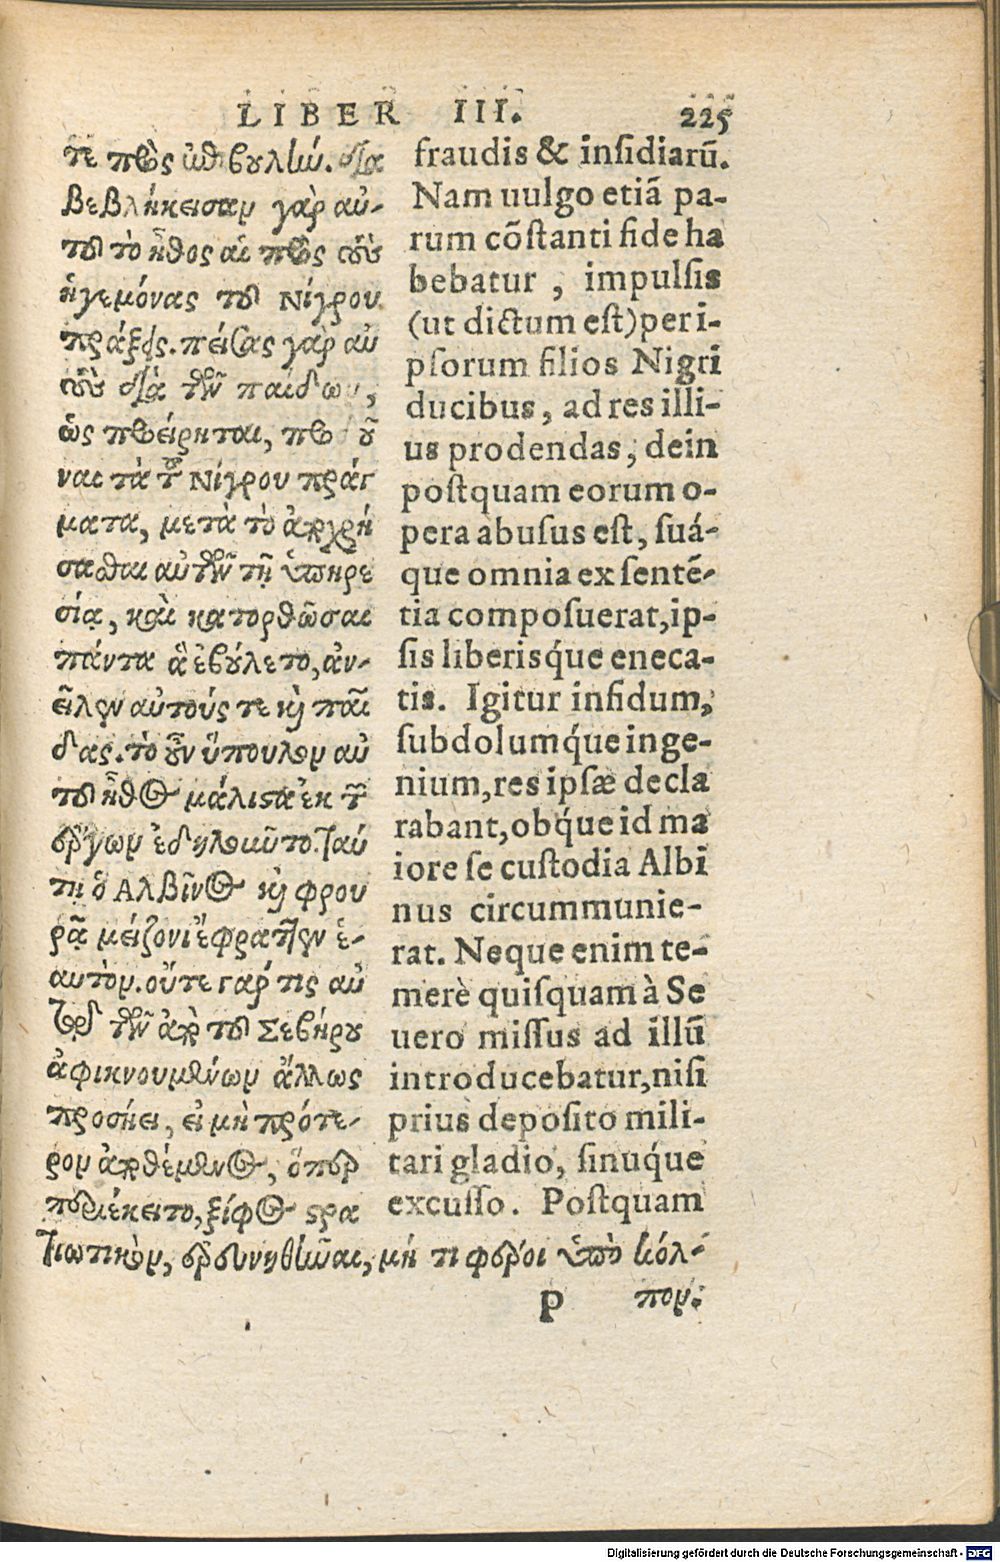 LIBER III. 225
τε πρὸς ἐπιβουλήν. δια
βεβλήκεισαν γὰρ αὐ-
τοῦ τὸ ἦθος αἱ πρὸς τοὺς
ἡγεμόνας τοῦ Νίγρου
πράξεις. πείσας γὰρ αὐ
τοὺς διὰ τῶν παίδων,
ὡς προείρηται, προδοῦ
ναι τὰ τοῦ Νίγρου πράγ
ματα, μετὰ τὸ ἀποχρή
σασθαι αὐτῶν τῇ ὑπηρε
σίᾳ, καὶ κατορθῶσαι
πάντα ἃ ἐβούλετο, ἀν-
εῖλεν αὐτούς τε καὶ παῖ
δας. τὸ οὖν ὕπουλον αὐ
τοῦ ἦθος μάλιστα ἐκ τῶν
ἔργων ἐδηλοῦτο. ταύ
τῃ ὁ Ἀλβῖνος καὶ φρου
ρᾷ μείζονι ἐφράττεν ἑ-
αυτόν. οὔτε γάρ τις αὐ
τῷ τῶν ἀπὸ τοῦ Σεβήρου
ἀφικνουμένων ἄλλως
προσῄει, εἰ μὴ πρότε-
ρον ἀποθέμενος, ὅπερ
περιέκειτο, ξίφος στρα
τιωτικὸν, ἐρευνηθῆναι, μή τι φέροι ὑπὸ κόλ-
fraudis & insidiarũ.
Nam uulgo etiã pa-
rum cõstanti fide ha
bebatur, impulsis
(ut dictum est) per i-
psorum filios Nigri
ducibus, ad res illi-
us prodendas, dein
postquam eorum o-
pera abusus est, suá-
que omnia ex sentẽ-
tia composuerat, ip-
sis liberisq́ue eneca-
tis. Igitur infidum,
subdolumq́ue inge-
nium, res ipsæ decla
rabant, obq́ue id ma
iore se custodia Albi
nus circummunie-
rat. Neque enim te-
merè quisquam à Se
uero missus ad illũ
introducebatur, nisi
prius deposito mili-
tari gladio, sinuq́ue
excusso. Postquam
P πον.
Digitalisierung gefördert durch die Deutsche Forschungsgemeinschaft - DFG